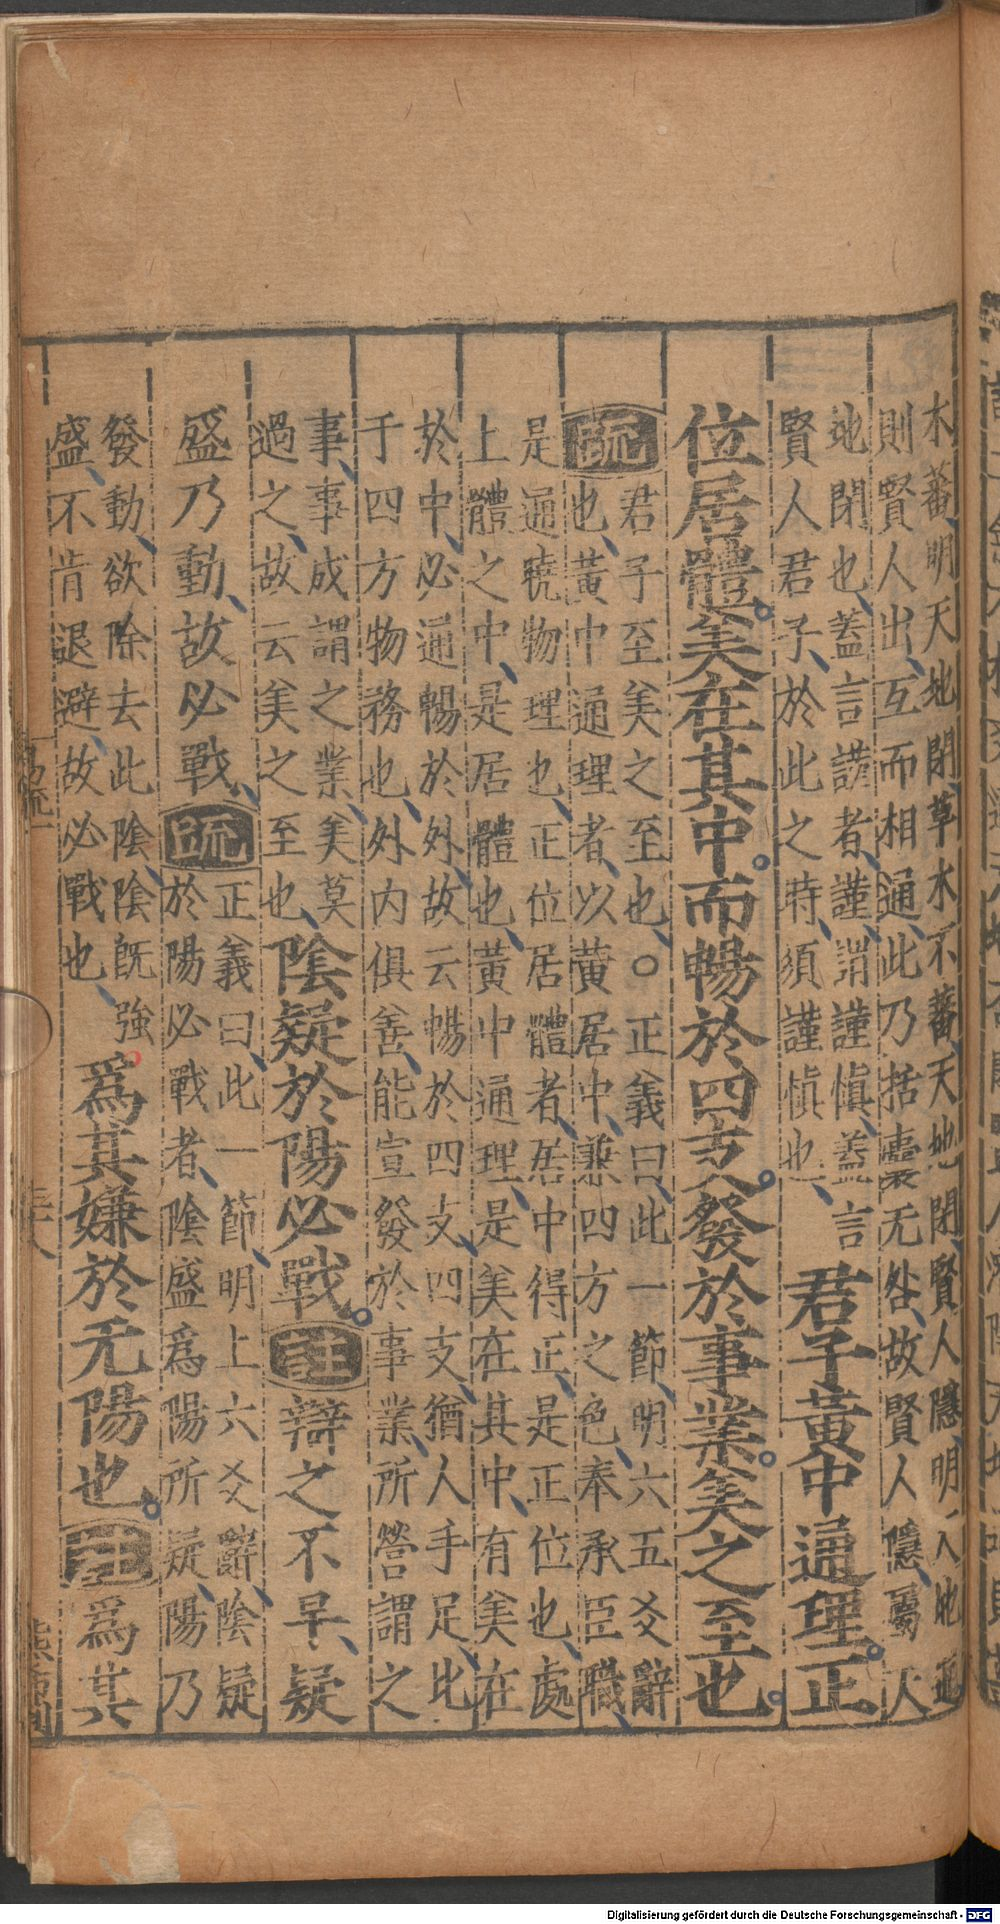 木蕃明天地閉草木不蕃天地閉賢人隱明天地通
則賢人出互而相通此乃括囊无咎故賢人隱屬天
地閉也蓋言謹者謹謂謹慎蓋言
賢人君子於此之時須謹慎也
君子黃中通理正
位居體美在其中而暢於四支發於事業美之至也
疏
君子至美之至也○正義曰此一節明六五爻辭
也黃中通理者以黃居中兼四方之色奉承臣職
是通曉物理也正位居體者居中得正是正位也處
上體之中是居體也黃中通理是美在其中有美在
於中必通暢於外故云暢於四支四支猶人手足比
于四方物務也外內俱善能宣發於事業所營謂之
事事成謂之業美莫
過之故云美之至也
陰疑於陽必戰
註
辯之不早疑
盛乃動故必戰
疏
正義曰此一節明上六爻辭陰疑
於陽必戰者陰盛為陽所疑陽乃
發動欲除去此陰陰既強
盛不肯退避故必戰也
爲其嫌於无陽也
註
爲其
Digitalisierung gefördert durch die Deutsche Forschungsgemeinschaft - DFG